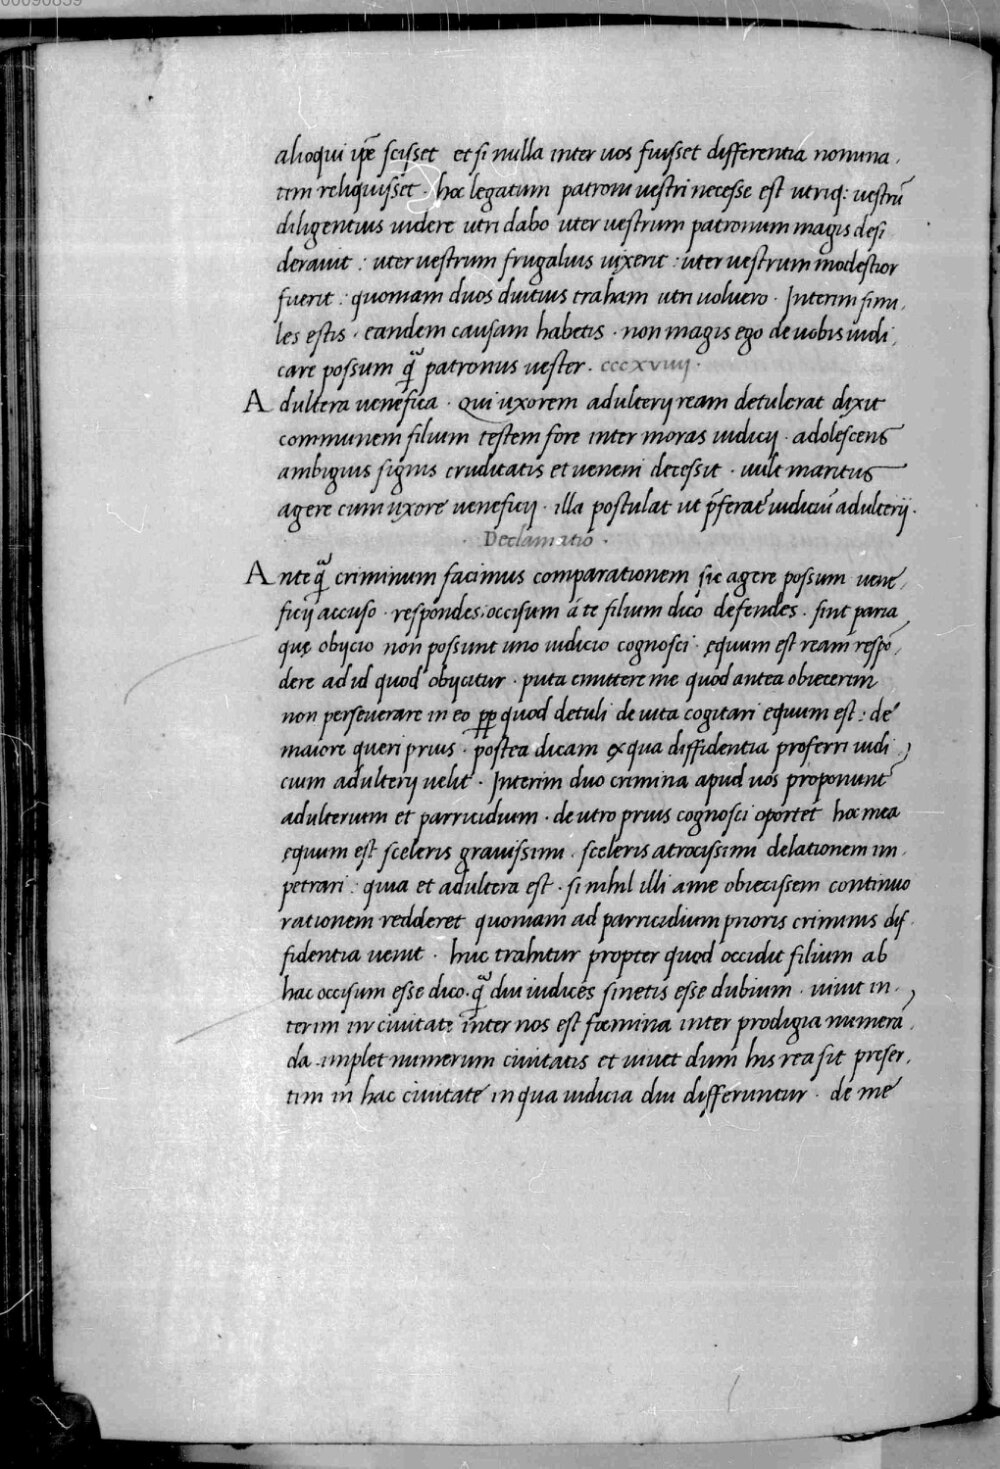 00090859
alioqui ip̄e scisset et si nulla inter uos fuisset differentia nomina,
tim reliquisset · hoc legatum patroni uestri necesse est utriq: uestrū
diligentius uidere utri dabo uter uestrum patronum magis desi
derauit : uter uestrum frugalius uixerit : uter uestrum modestior
fuerit : quoniam duos diutius traham utri uoluero · Interim simi,
les estis · eandem causam habetis · non magis ego de uobis iudi,
care possum q̃ patronus uester . cccxviiij ·
Adultera uenefica · Qui uxorem adulterij ream detulerat dixit
communem filium testem fore inter moras iudicij · adolescens
ambiguis signis cruditatis et ueneni decessit · uult maritus
agere cum uxore ueneficij · illa postulat ut p̄ferat̃ iudiciū adulterij ·
· Declamatiō ·
Ante q̃ criminum facimus comparationem sic agere possum uene,
ficij accuso · respondes : occisum á te filium dico defendes · sint paria
quę obijcio non possunt uno iudicio cognosci · ęquum est ream respō,
dere ad id quod obijcitur · puta emittere me quod antea obiecerim
non perseuerare in eo pp quod detuli de uita cogitari equum est : de
maiore queri prius · postea dicam ex qua diffidentia proferri iudi,
cium adulterij uelit · Interim duo crimina apud uos proponunt̃
adulterium et parricidium · de utro prius cognosci oportet hoc mea
ęquum est sceleris grauissimi · sceleris atrocissimi delationem im,
petrari : quia et adultera est · si nihil illi a me obiecissem continuo
rationem redderet quoniam ad parricidium prioris criminis dif,
fidentia uenit · huc trahitur propter quod occidit filium ab
hac occisum esse dico · q̃ diu iudices sinetis esse dubium · uiuit in,
terim in ciuitate inter nos est foemina inter prodigia numerā,
da implet numerum ciuitatis et uiuet dum his rea sit preser,
tim in hac ciuitate in qua iudicia diu differuntur · de me